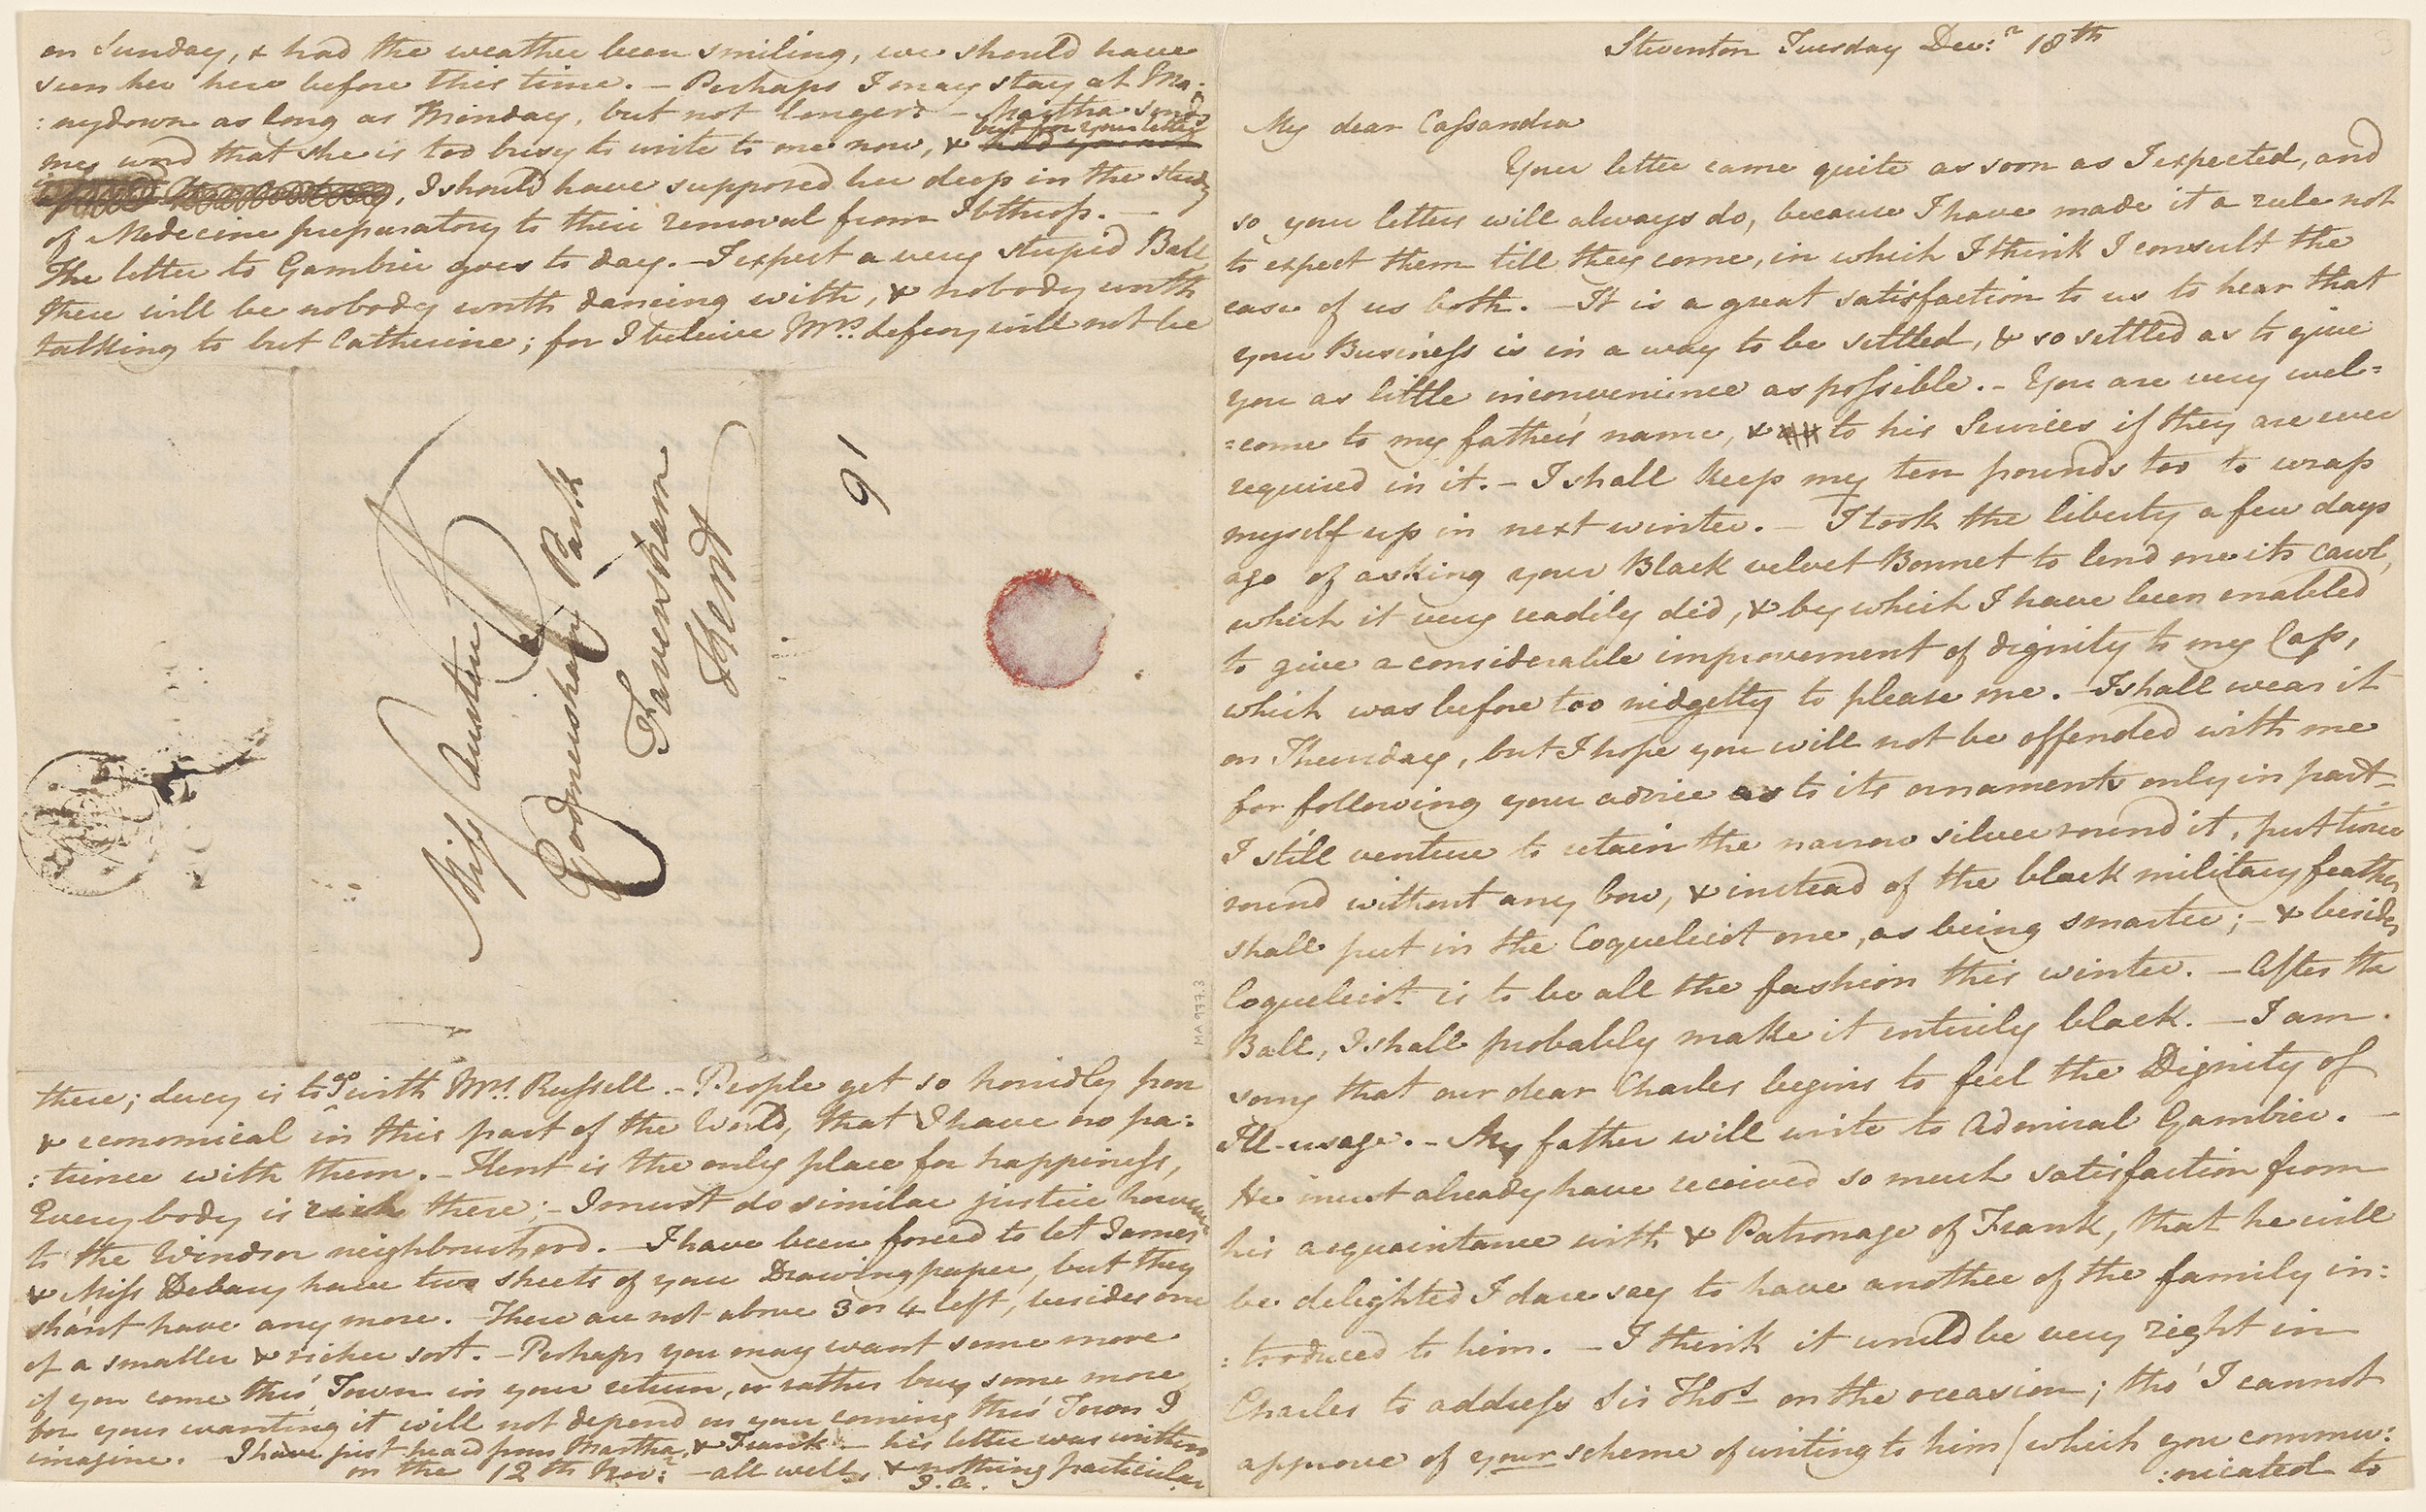 Steventon Tuesday Decr: 18th
My dear Cassandra
Your letter came quite as soon as I expected, and
so your letters will always do, because I have made it a rule not
to expect them till they come, in which I think I consult the
ease of us both. — It is a great satisfaction to us to hear that
your Business is in a way to be settled, & so settled as to give
you as little inconvenience as possible. - You are very wel=
=come to my father's name, & to his Services if they are ever
required in it. - I shall keep my ten pounds too to wrap
myself up in next winter. — I took the liberty a few days
ago of asking your Black velvet Bonnet to lend me its cawl,
which it very readily did, & by which I have been enabled
to give a considerable improvement of dignity to my Cap,
which was before too nidgetty to please me. - I shall wear it
on Thursday, but I hope you will not be offended with me
for following your advice as to its ornaments only in part -
I still venture to retain the narrow silver round it, put twice
round without any bow, & instead of the black military feather
shall put in the Coquelicot one, as being smarter; - & besides
Coquelicot is to be all the fashion this winter. — After the
Ball, I shall probably make it entirely black. — I am
sorry that our dear Charles begins to feel the Dignity of
Ill-usage. - My father will write to Admiral Gambier. —
He must already have received so much satisfaction from
his acquaintance with & Patronage of Frank, that he will
be delighted I dare say to have another of the family in:
:troduced to him. — I think it would be very right in
Charles to address Sir Thos on the occasion; tho' I cannot
approve of your scheme of writing to him (which you commu:
:nicated to
on Sunday, & had the weather been smiling, we should have
seen her here before this time. — Perhaps I may stay at Ma:
:nydown as long as Monday, but not longer. - Martha sends
but for your letter
me word that she is too busy to write to me now, & had you not
, I should have supposed her deep in the study
of Medecine preparatory to their removal from Ibthrop. —
The letter to Gambier goes to day. - I expect a very stupid Ball,
there will be nobody worth dancing with, & nobody worth
talking to but Catherine; for I beleive Mrs. Lefroy will not be
Miss Austen
Godmersham Park
Faversham
Kent
91
MA 977.3
there; Lucy is to go with Mrs. Russell. - People get so horridly poor
& economical in this part of the World, that I have no pa:
:tience with them. - Kent is the only place for happiness,
Everybody is rich there; - I must do similar justice however
to the Windsor neighbourhood. — I have been forced to let James
& Miss Debary have two sheets of your Drawing paper, but they
sha'nt have any more. There are not above 3 or 4 left, besides one
of a smaller & richer sort. - Perhaps you may want some more
if you come thro' Town in your return, or rather buy some more,
for your wanting it will not depend on your coming thro' Town I
imagine. - I have just heard from Martha, & Frank - his letter was written
on the 12th Novr: - all well, & nothing particular
J.A.